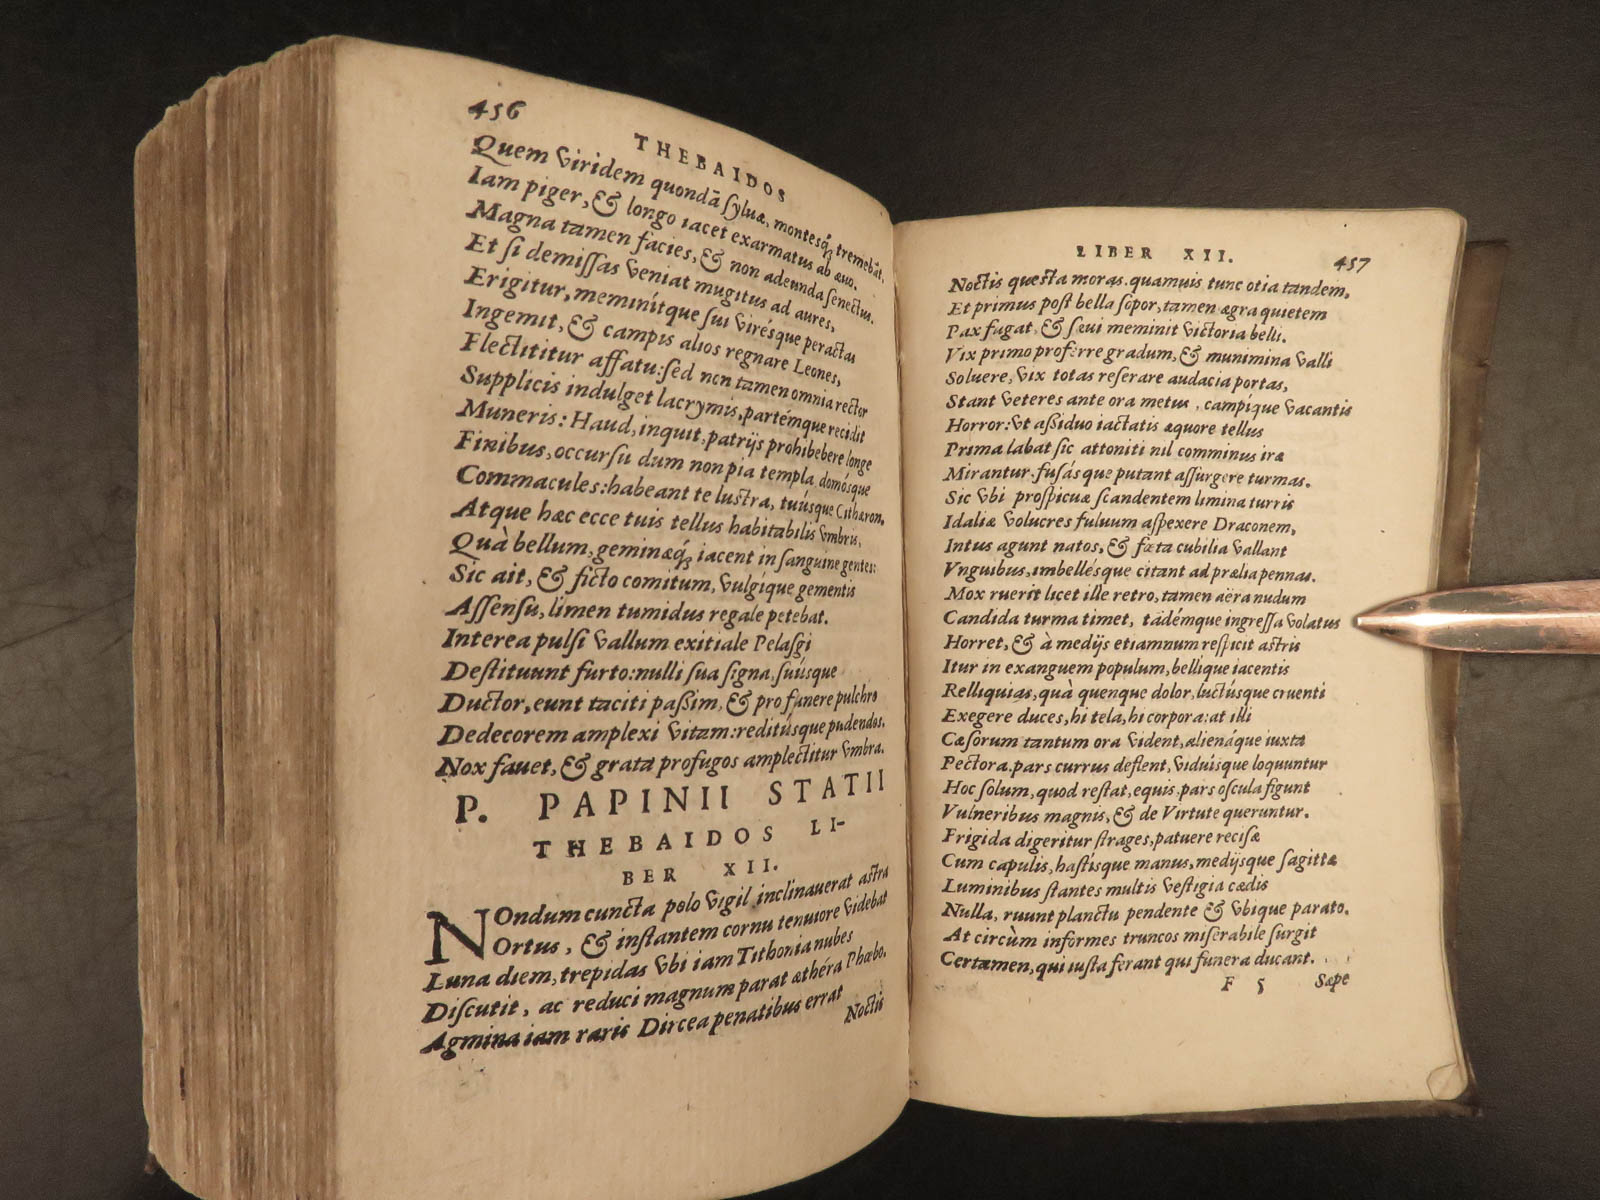 456
THEBAIDOS
Quem viridem quondā sylvæ, montesq́ tremebāt.
Iam piger, & longo iacet exarmatus ab ævo.
Magna tamen facies, & non adeunda senectus.
Et si demissas veniat mugitus ad aures,
Erigitur, meminítque sui virésque peractas
Ingemit, & campis alios regnare Leones,
Flectititur affatu: sed non tamen omnia rector
Supplicis indulget lacrymis, partémque recidit
Muneris: Haud, inquit, patrijs prohibebere longe
Finibus, occursu dum non pia templa domósque
Commacules: habeant te lustra, tuúsque Cithæron,
Atque hæc ecce tuis tellus habitabilis vmbris,
Quà bellum, geminæq́ iacent in sanguine gentes:
Sic ait, & ficto comitum, vulgíque gementis
Assensu, limen tumidus regale petebat.
Interea pulsi vallum exitiale Pelasgi
Destituunt furto: nulli sua signa, suúsque
Ductor, eunt taciti passim, & pro funere pulchro
Dedecorem amplexi vitam: reditúsque pudendos.
Nox favet, & grata profugos amplectitur vmbra.
P. PAPINII STATII
THEBAIDOS LI-
BER XII.
NOndum cuncta polo vigil inclinauerat astra
Ortus, & instantem cornu tenuiore videbat
Luna diem, trepidas vbi iam Tithonia nubes
Discutit, ac reduci magnum parat æthéra Phœbo.
Agmina iam raris Dircea penatibus errat
Noctis
LIBER XII. 457
Noctis questa moras. quamuis tunc otia tandem,
Et primus post bella sopor, tamen ægra quietem
Pax fugat, & sæui meminit victoria belli.
Vix primo proferre gradum, & munimina valli
Soluere, vix totas reserare audacia portas,
Stant veteres ante ora metus, campíque vacantis
Horror: vt assiduo iactatis æquore tellus
Prima labat sic attoniti nil comminus iræ
Mirantur: fusásque putant assurgere turmas.
Sic vbi prospicuæ scandentem limina turris
Idaliæ volucres fuluum aspexere Draconem,
Intus agunt natos, & fœta cubilia vallant
Vnguibus, imbellésque citant ad prælia pennas.
Mox ruerit licet ille retro, tamen aëra nudum
Candida turma timet, tādémque ingressa volatus
Horret, & à medijs etiamnum respicit astris
Itur in exanguem populum, bellique iacentis
Relliquias, quà quenque dolor, luctúsque cruenti
Exegere duces, hi tela, hi corpora: at illi
Cæsorum tantum ora vident, alienáque iuxta
Pectora. pars currus deflent, viduísque loquuntur
Hoc solum, quod restat, equis. pars oscula figunt
Vulneribus magnis, & de Virtute queruntur.
Frigida digeritur strages, patuere recisæ
Cum capulis, hastisque manus, medijsque sagittæ
Luminibus stantes multis vestigia cædis
Nulla, ruunt planctu pendente & vbique parato.
At circùm informes truncos miserabile surgit
Certamen, qui iusta ferant qui funera ducant.
F 5 Sæpe